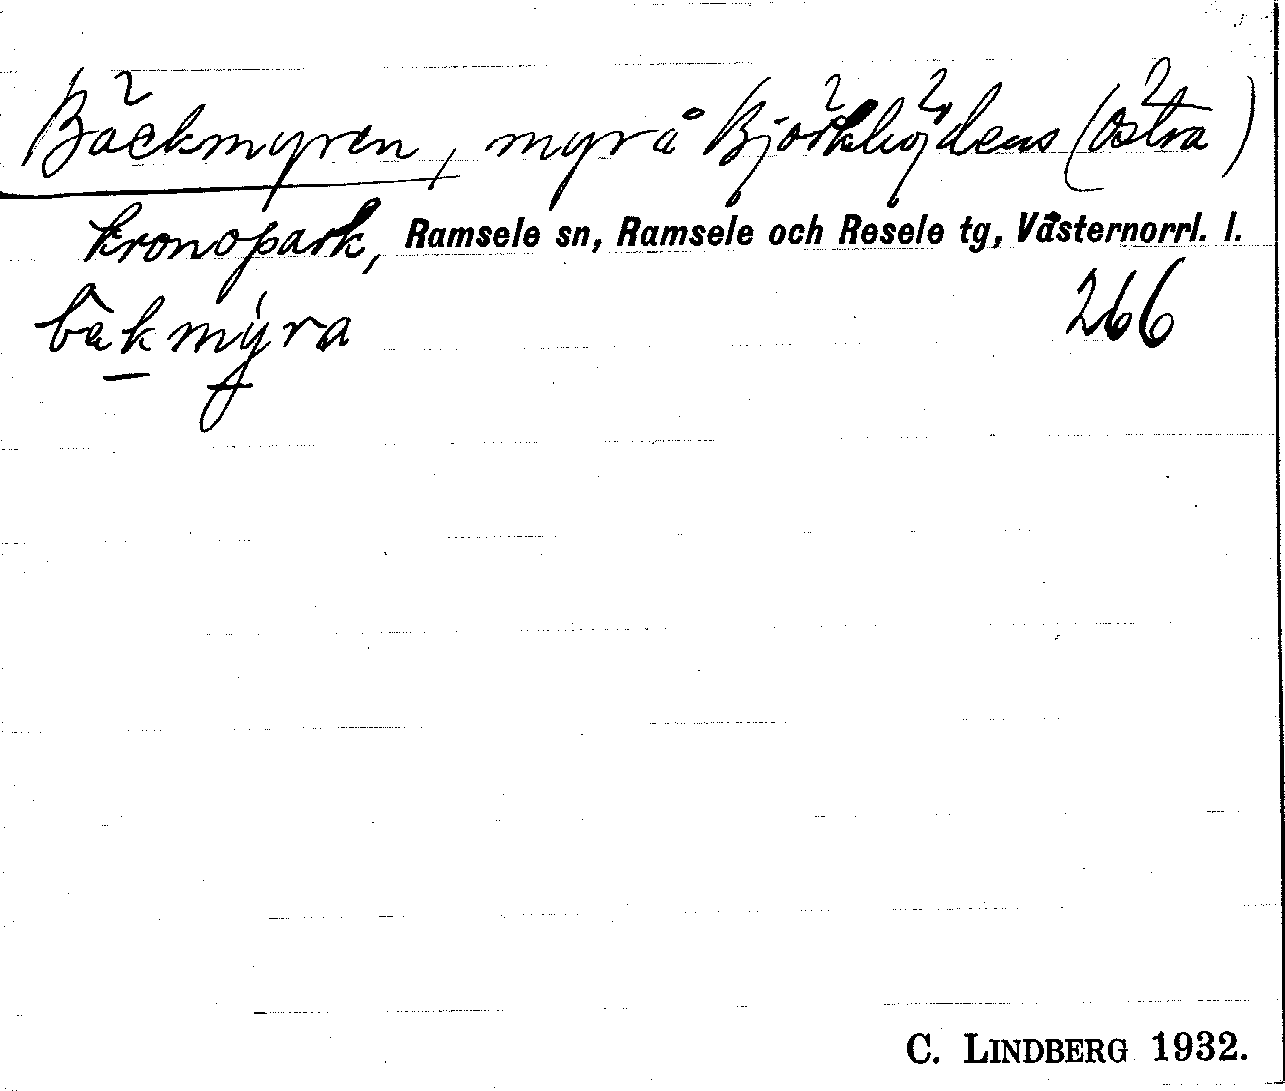 Bäckmyren, myr å Björkhöjdens (Östra)
kronopark, Ramsele sn, Ramsele och Resele tg, Västernorrl. l.
bäkmýra 266
C. LINDBERG 1932.